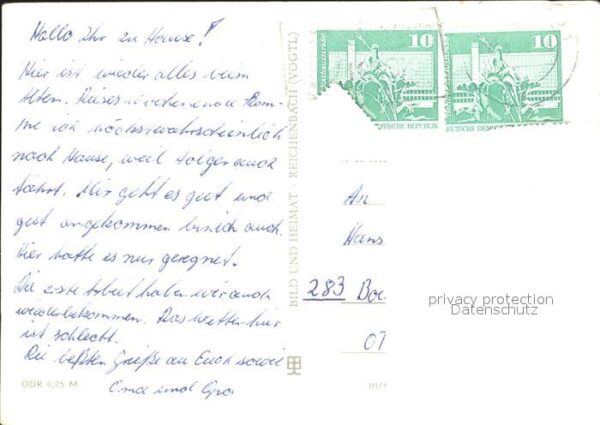 Hallo Ihr zu Hause!
Hier ist wieder alles beim
Alten. Dieses Wochenende kom-
me ich höchstwahrscheinlich
nach Hause, weil Holger auch
fährt. Mir geht es gut und
gut angekommen bin ich auch.
Hier hatte es nur geregnet.
Die erste Arbeit haben wir auch
wiederbekommen. Das Wetter hier
ist schlecht.
Die besten Grüße an Euch sowie
Oma und Opa
DDR 0,25 M
BILD UND HEIMAT · REICHENBACH (VOGTL)
10
10
ATISCHE REPUBLIK
EUTSCHE DEMO
An
Hans
283 Boi
privacy protection
Datenschutz